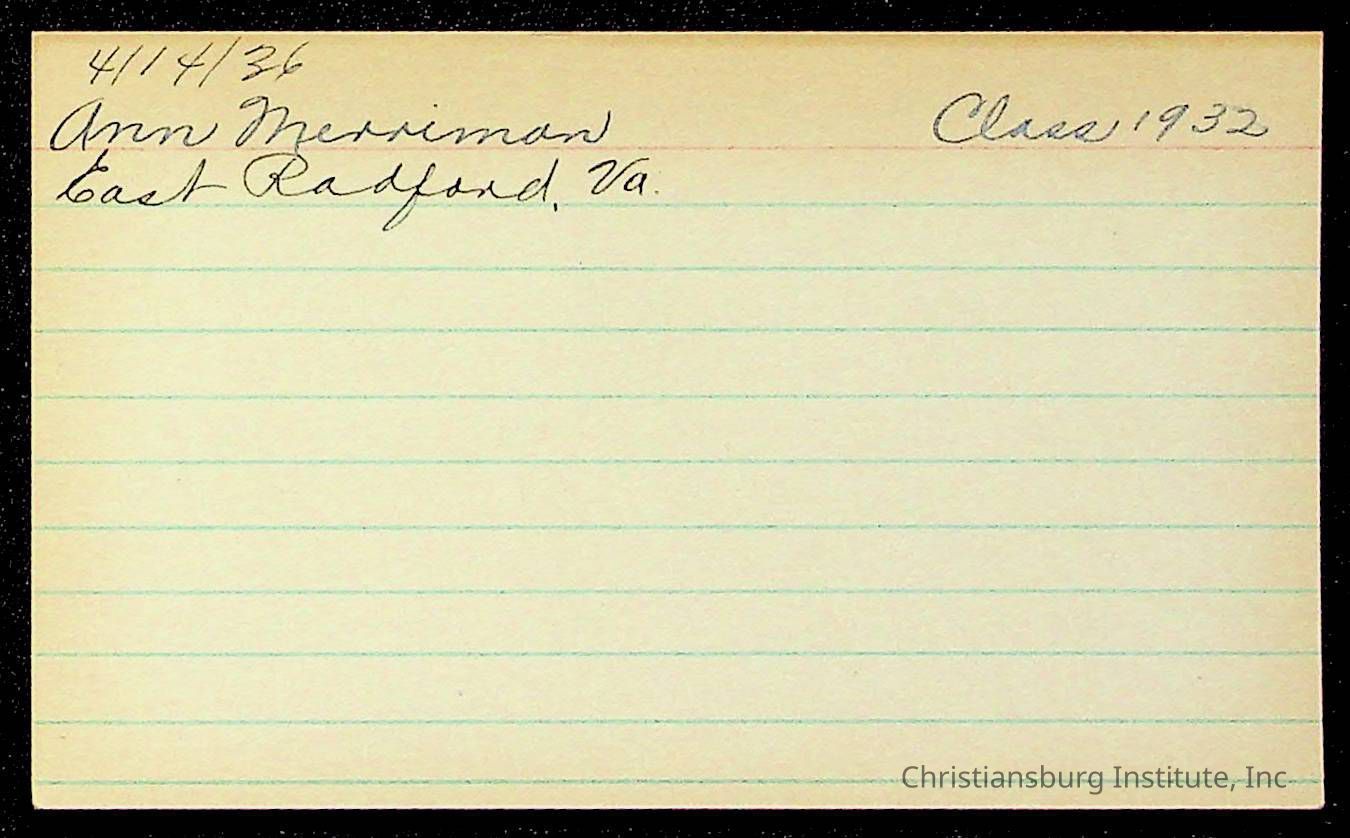 4/14/36
Ann Merriman Class 1932
East Radford, Va.
Christiansburg Institute, Inc